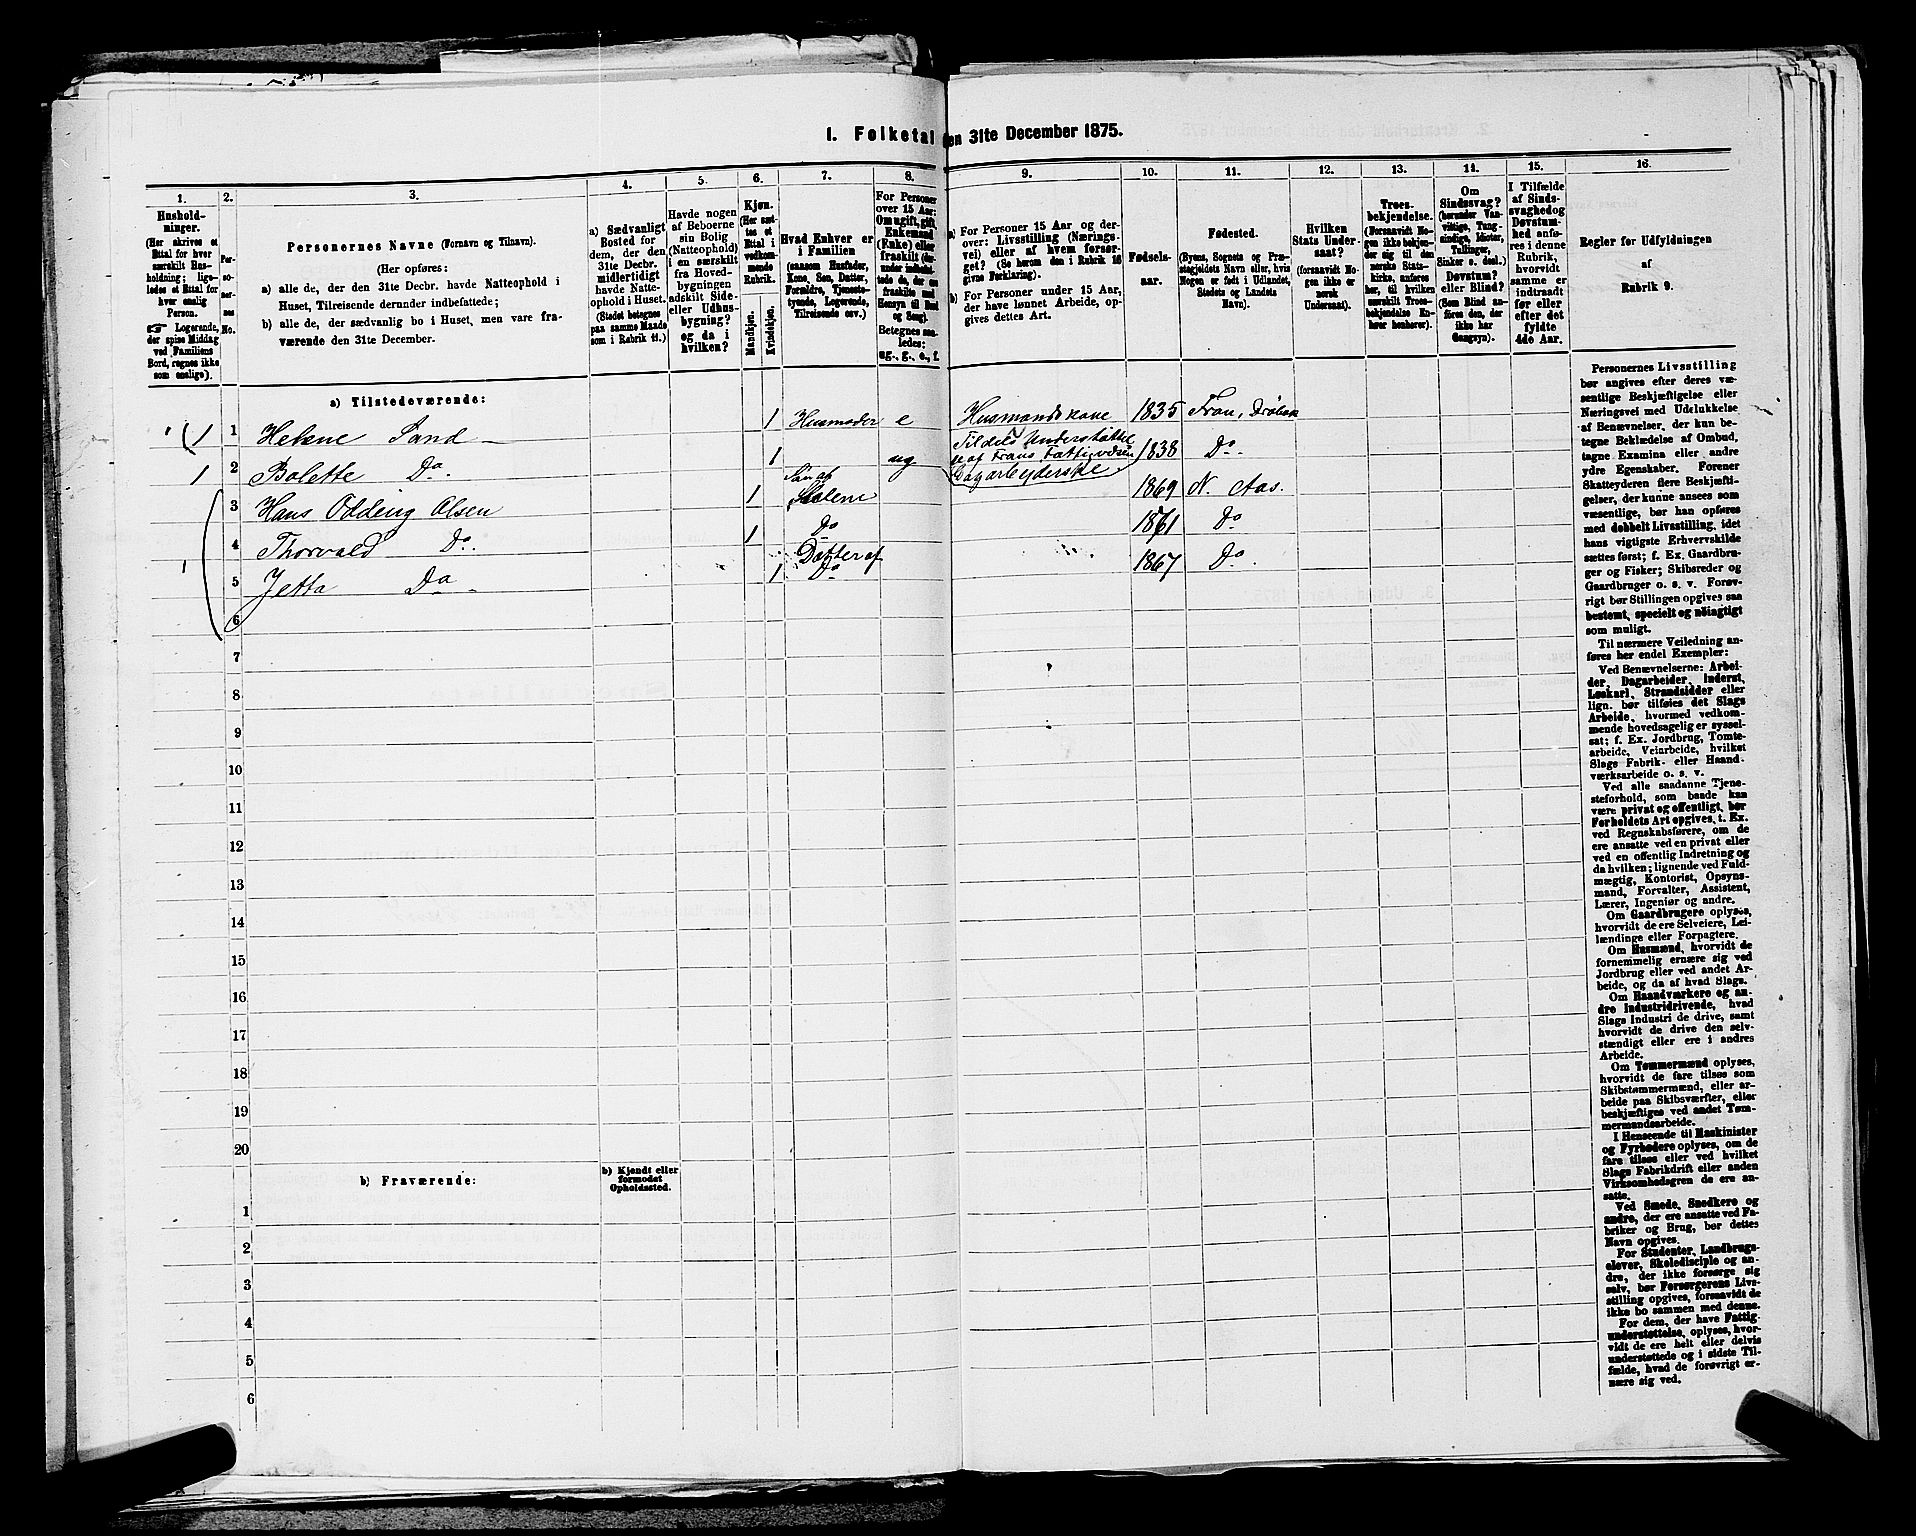 I. Folketal den 31te December 1875.
1.
Hushold-
ninger.
(Her skrives et
Ettal for hver
særskilt Hus-
holdning; lige-
ledes et Ettal for
hver enslig
Person.
Logerende,
der spise Middag
ved Familiens
Bord, regnes ikke
som enslige).
2.
Per-
so-
ner-
nes
No.
3.
Personernes Navne (Fornavn og Tilnavn).
(Her opføres:
a) alle de, der den 31te Decbr. havde Natteophold i
Huset, Tilreisende derunder indbefattede;
b) alle de, der sædvanlig bo i Huset, men vare fra-
værende den 31te December.
4.
a) Sædvanligt
Bosted for
dem, der den
31te Decbr.
midlertidigt
havde Natte-
ophold i Huset.
(Stedet betegnes
paa samme Maade
som i Rubrik 11.)
5.
Havde nogen
af Beboerne
sin Bolig
(Natteophold)
i en særskilt
fra Hoved-
bygningen
adskilt Side-
eller Udhus-
bygning?
og da i
hvilken?
6.
Kjøn.
(Her sæt-
tes et
Ettal i
vedkom-
mende
Rubrik.
Mandkjøn.
Kvindekjøn.
7.
Hvad Enhver er
i Familien
(saasom Husfader,
Kone, Søn, Datter,
Forældre, Tjeneste-
tyende, Logerende,
Tilreisende osv.)
8.
For Personer
over 15 Aar:
Om ugift, gift,
Enkemand
(Enke) eller
fraskilt
Betegnes saa-
ledes:
ug., g., e., f.
9.
a) For Personer 15 Aar og der-
over: Livsstilling (Nærings-
vei) eller af hvem forsør-
get? (Se herom den i Rubrik 16
givne Forklaring).
b) For Personer under 15 Aar,
der have lønnet Arbeide, op-
gives dettes Art.
10.
Fødsels-
aar.
11.
Fødested.
(Byens, Sognets og Præ-
stegjeldets Navn eller, hvis
Nogen er født i Udlandet,
Stedets og Landets
Navn).
12.
Hvilken
Stats Under-
saat?
(forsaavidt No-
gen ikke er
norsk
Undersaat).
13.
Troes-
bekjendelse.
(Forsaavidt No-
gen ikke bekjen-
der sig til den
norske Stats-
kirke, anføres
her, til hvilken
særskilt Troes-
bekjendelse En-
hver henhører).
14.
Om
Sindssvag?
(herunder Van-
vittige, Tung-
sindige, Idioter,
Tullinger,
Sinker o. desl.)
Døvstum?
eller Blind?
(Som Blind an-
føres den, der
ikke har
Gangsyn).
15.
I Tilfælde
af Sinds-
svaghed og
Døvstum-
hed anfø-
res i denne
Rubrik,
hvorvidt
samme er
indtraadt
før eller
efter det
fyldte
4de Aar.
16.
Regler for Udfyldningen
af
Rubrik 9.
a) Tilstedeværende:
1 1 Helene Sand 1 Husmoder e Husmandskone 1835 Fron, Drøbak
1 2 Bolette Do. 1 ug Tildels Understøttet af Frons Fattigvæsen Dagarbejderske 1838 Do.
3 Hans Odding Olsen 1 Søn af Helene 1869 N. Aas.
4 Thorvald Do. 1 Do 1861 Do
5 Jetta Do 1 Datter af Do 1867 Do.
6
7
8
9
10
11
12
13
14
15
16
17
18
19
20
b) Fraværende:
b) Kjendt eller
formodet
Opholdssted.
1
2
3
4
5
6
Personernes Livsstilling
bør angives efter deres væ-
sentlige Beskjæftigelse eller
Næringsvei med Udelukkelse
af Benævnelser, der kun be-
tegne Beklædelse af Ombud,
tagne Examina eller andre
ydre Egenskaber. Forener
Skatteyderen flere Beskjæfti-
gelser, der kunne ansees som
væsentlige, bør han opføres
med dobbelt Livsstilling, idet
hans vigtigste Erhvervskilde
sættes først; f. Ex. Gaardbru-
ger og Fisker; Skibsreder og
Gaardbruger o. s. v. Forøv-
rigt bør Stillingen opgives saa
bestemt, specielt og nøiagtigt
som muligt.
Til nærmere Veiledning an-
føres her endel Exempler:
Ved Benævnelserne: Arbei-
der, Dagarbeider, Inderst,
Løskarl, Strandsidder eller
lign. bør tilføies det Slags
Arbeide, hvormed vedkom-
mende hovedsagelig er syssel-
sat; f. Ex. Jordbrug, Tomte-
arbeide, Veiarbeide, hvilket
Slags Fabrik- eller Haand-
værksarbeide o. s. v.
Ved alle saadanne Tjene-
steforhold, som baade kan
være privat og offentligt, bør
Forholdets Art opgives, t. Ex.
ved Regnskabsførere, om de
ere ansatte ved en privat eller
ved en offentlig Indretning og
da hvilken; lignende ved Fuld-
mægtig, Kontorist, Opsyns-
mand, Forvalter, Assistent,
Lærer, Ingeniør og andre.
Om Gaardbrugere oplyses,
hvorvidt de ere Selveiere, Lei-
lændinge eller Forpagtere.
Om Husmænd, hvorvidt de
fornemmelig ernære sig ved
Jordbrug eller ved andet Ar-
beide, og da af hvad Slags.
Om Haandværkere og an-
dre Industridrivende, hvad
Slags Industri de drive, samt
hvorvidt de drive den selv-
stændigt eller ere i andres
Arbeide.
Om Tømmermænd oplyses,
hvorvidt de fare tilsøs som
Skibstømmermænd, eller ar-
beide paa Skibsværfter, eller
beskjæftiges ved andet Tøm-
mermandsarbeide.
I Henseende til Maskinister
og Fyrbødere oplyses, om de
fare tilsøs eller ved hvilket
Slags Fabrikdrift eller anden
Virksomhedsgren de ere an-
satte.
Ved Smede, Snedkere og
andre, der ere ansatte ved Fa-
briker og Brug, bør dettes
Navn opgives.
For Studenter, Landbrugs-
elever, Skoledisciple og an-
dre, der ikke forsørge sig
selv, bør Forsørgerens Livs-
stilling opgives, forsaavidt de
ikke bo sammen med denne.
For dem, der have Fattig-
understøttelse, oplyses, hvor-
vidt de ere helt eller delvis
understøttede og i sidste Til-
fælde, hvad de forøvrigt er-
nære sig ved.